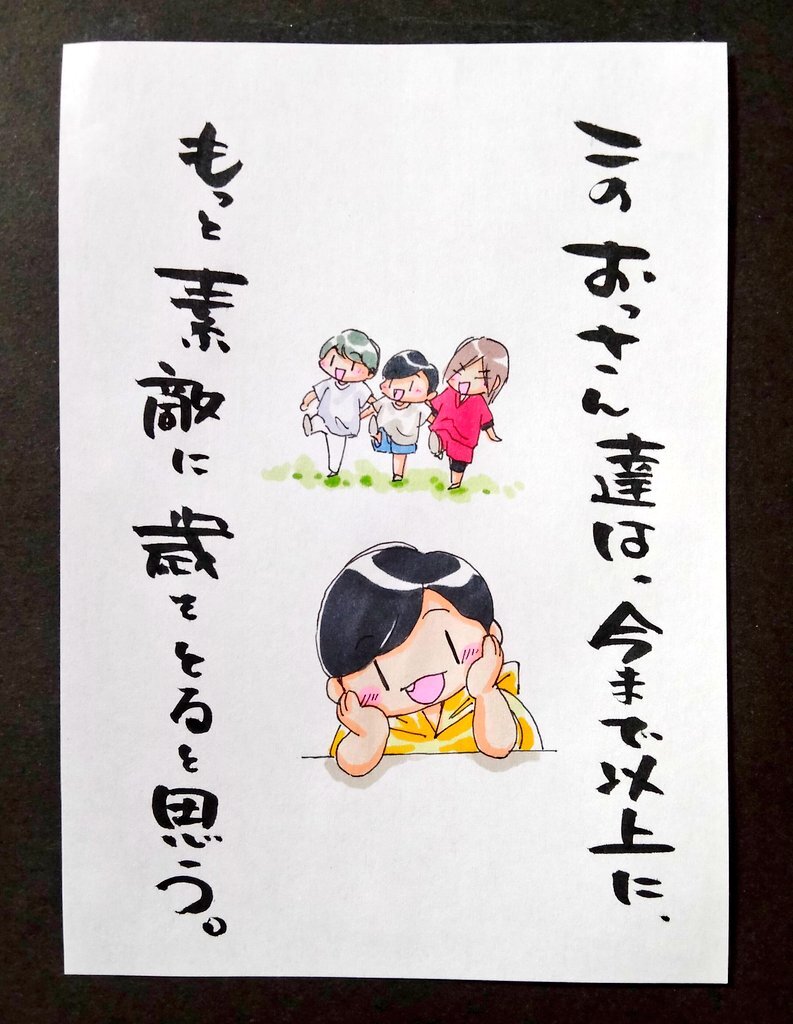 このおっさん達は、今まで以上に、
もっと素敵に歳をとると思う。